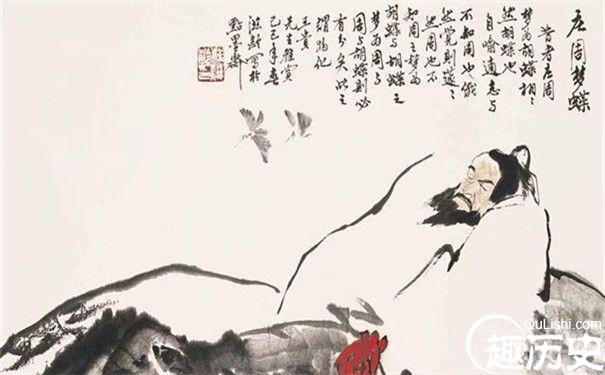 庄周梦蝶
昔者庄周
梦为胡蝶栩〻
然胡蝶也
自喻適志与
不知周也俄
然觉则蘧〻
然周也不
知周之梦为
胡蝶与胡蝶之
梦为周与
周与胡蝶则必
有分矣此之
谓物化
王贵
先生雅赏
己巳年春
QuLishi.com
趣历史